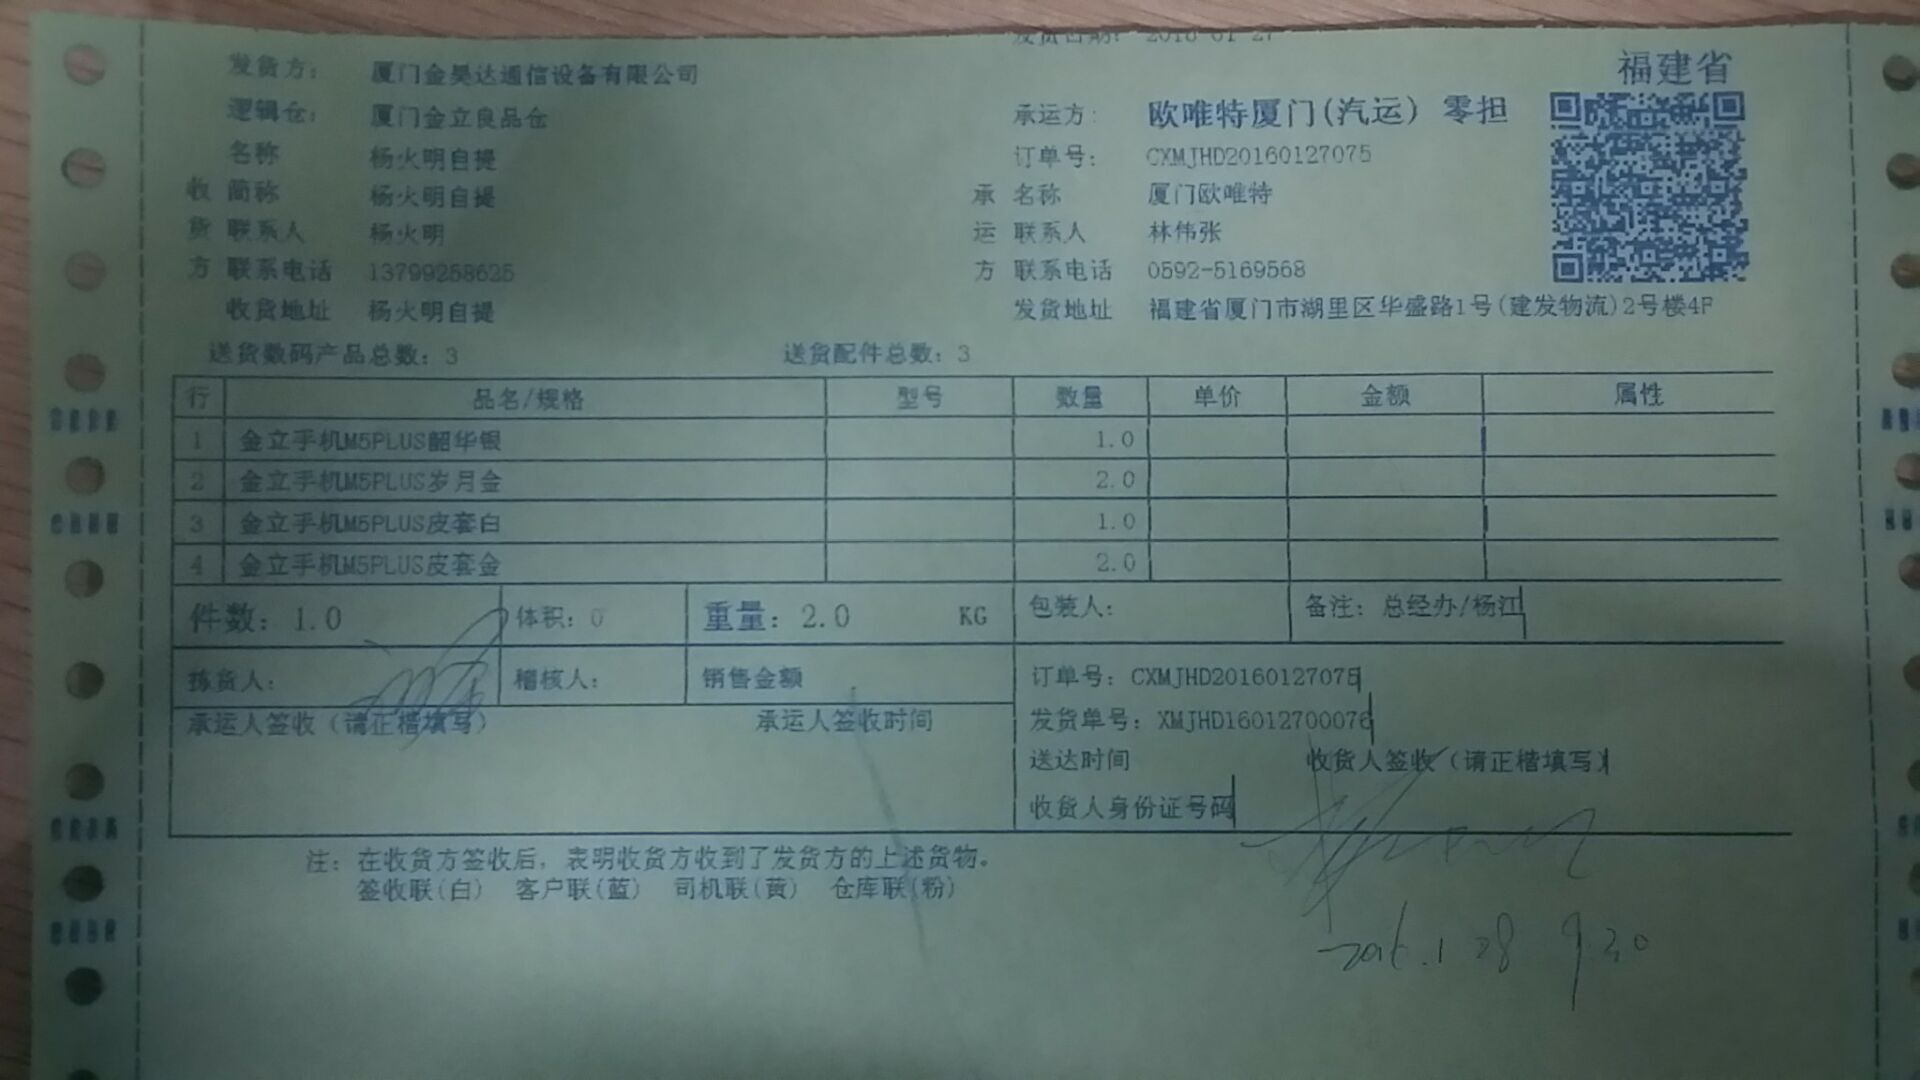 发货日期: 2016-01-27
福建省
发货方: 厦门金昊达通信设备有限公司
逻辑仓: 厦门金立良品仓 承运方: 欧唯特厦门(汽运) 零担
名称 杨火明自提 订单号: CXMJHD20160127075
收 简称 杨火明自提 承 名称 厦门欧唯特
货 联系人 杨火明 运 联系人 林伟张
方 联系电话 13799258625 方 联系电话 0592-5169568
收货地址 杨火明自提 发货地址 福建省厦门市湖里区华盛路1号(建发物流)2号楼4F
送货数码产品总数: 3 送货配件总数: 3
行 品名/规格 型号 数量 单价 金额 属性
1 金立手机M5PLUS韶华银 1.0
2 金立手机M5PLUS岁月金 2.0
3 金立手机M5PLUS皮套白 1.0
4 金立手机M5PLUS皮套金 2.0
件数: 1.0 体积: 0 重量: 2.0 KG 包装人: 备注: 总经办/杨江
拣货人: 稽核人: 销售金额 订单号: CXMJHD20160127075
承运人签收(请正楷填写) 承运人签收时间 发货单号: XMJHD16012700076
送达时间 收货人签收(请正楷填写)
收货人身份证号码
注: 在收货方签收后, 表明收货方收到了发货方的上述货物。
签收联(白) 客户联(蓝) 司机联(黄) 仓库联(粉)
2016.1 28 9.30